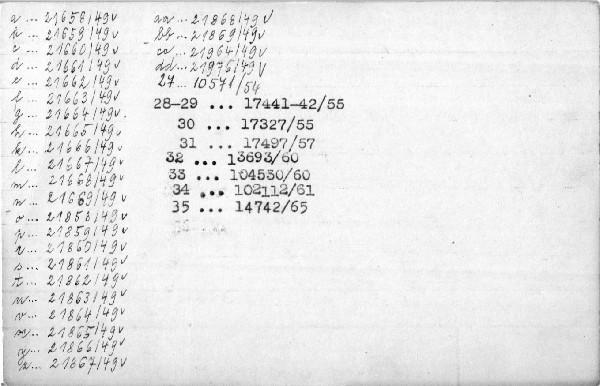 a ... 21658/49 v
b ... 21659/49 v
c ... 21660/49 v
d ... 21661/49 v
e ... 21662/49 v
f ... 21663/49 v
g ... 21664/49 v.
h ... 21665/49 v
k ... 21666/49 v
l ... 21667/49 v
m ... 21668/49 v
n ... 21669/49 v
o ... 21858/49 v
p ... 21859/49 v
r ... 21860/49 v
s ... 21861/49 v
t ... 21862/49 v
u ... 21863/49 v
v ... 21864/49 v
x ... 21865/49 v
y ... 21866/49 v
z ... 21867/49 v
aa ... 21868/49 v
bb ... 21869/49 v
cc ... 21964/49 v
dd ... 21976/49 v
27 ... 10571/54
28-29 ... 17441-42/55
30 ... 17327/55
31 ... 17497/57
32 ... 13693/60
33 ... 104530/60
34 ... 102112/61
35 ... 14742/65